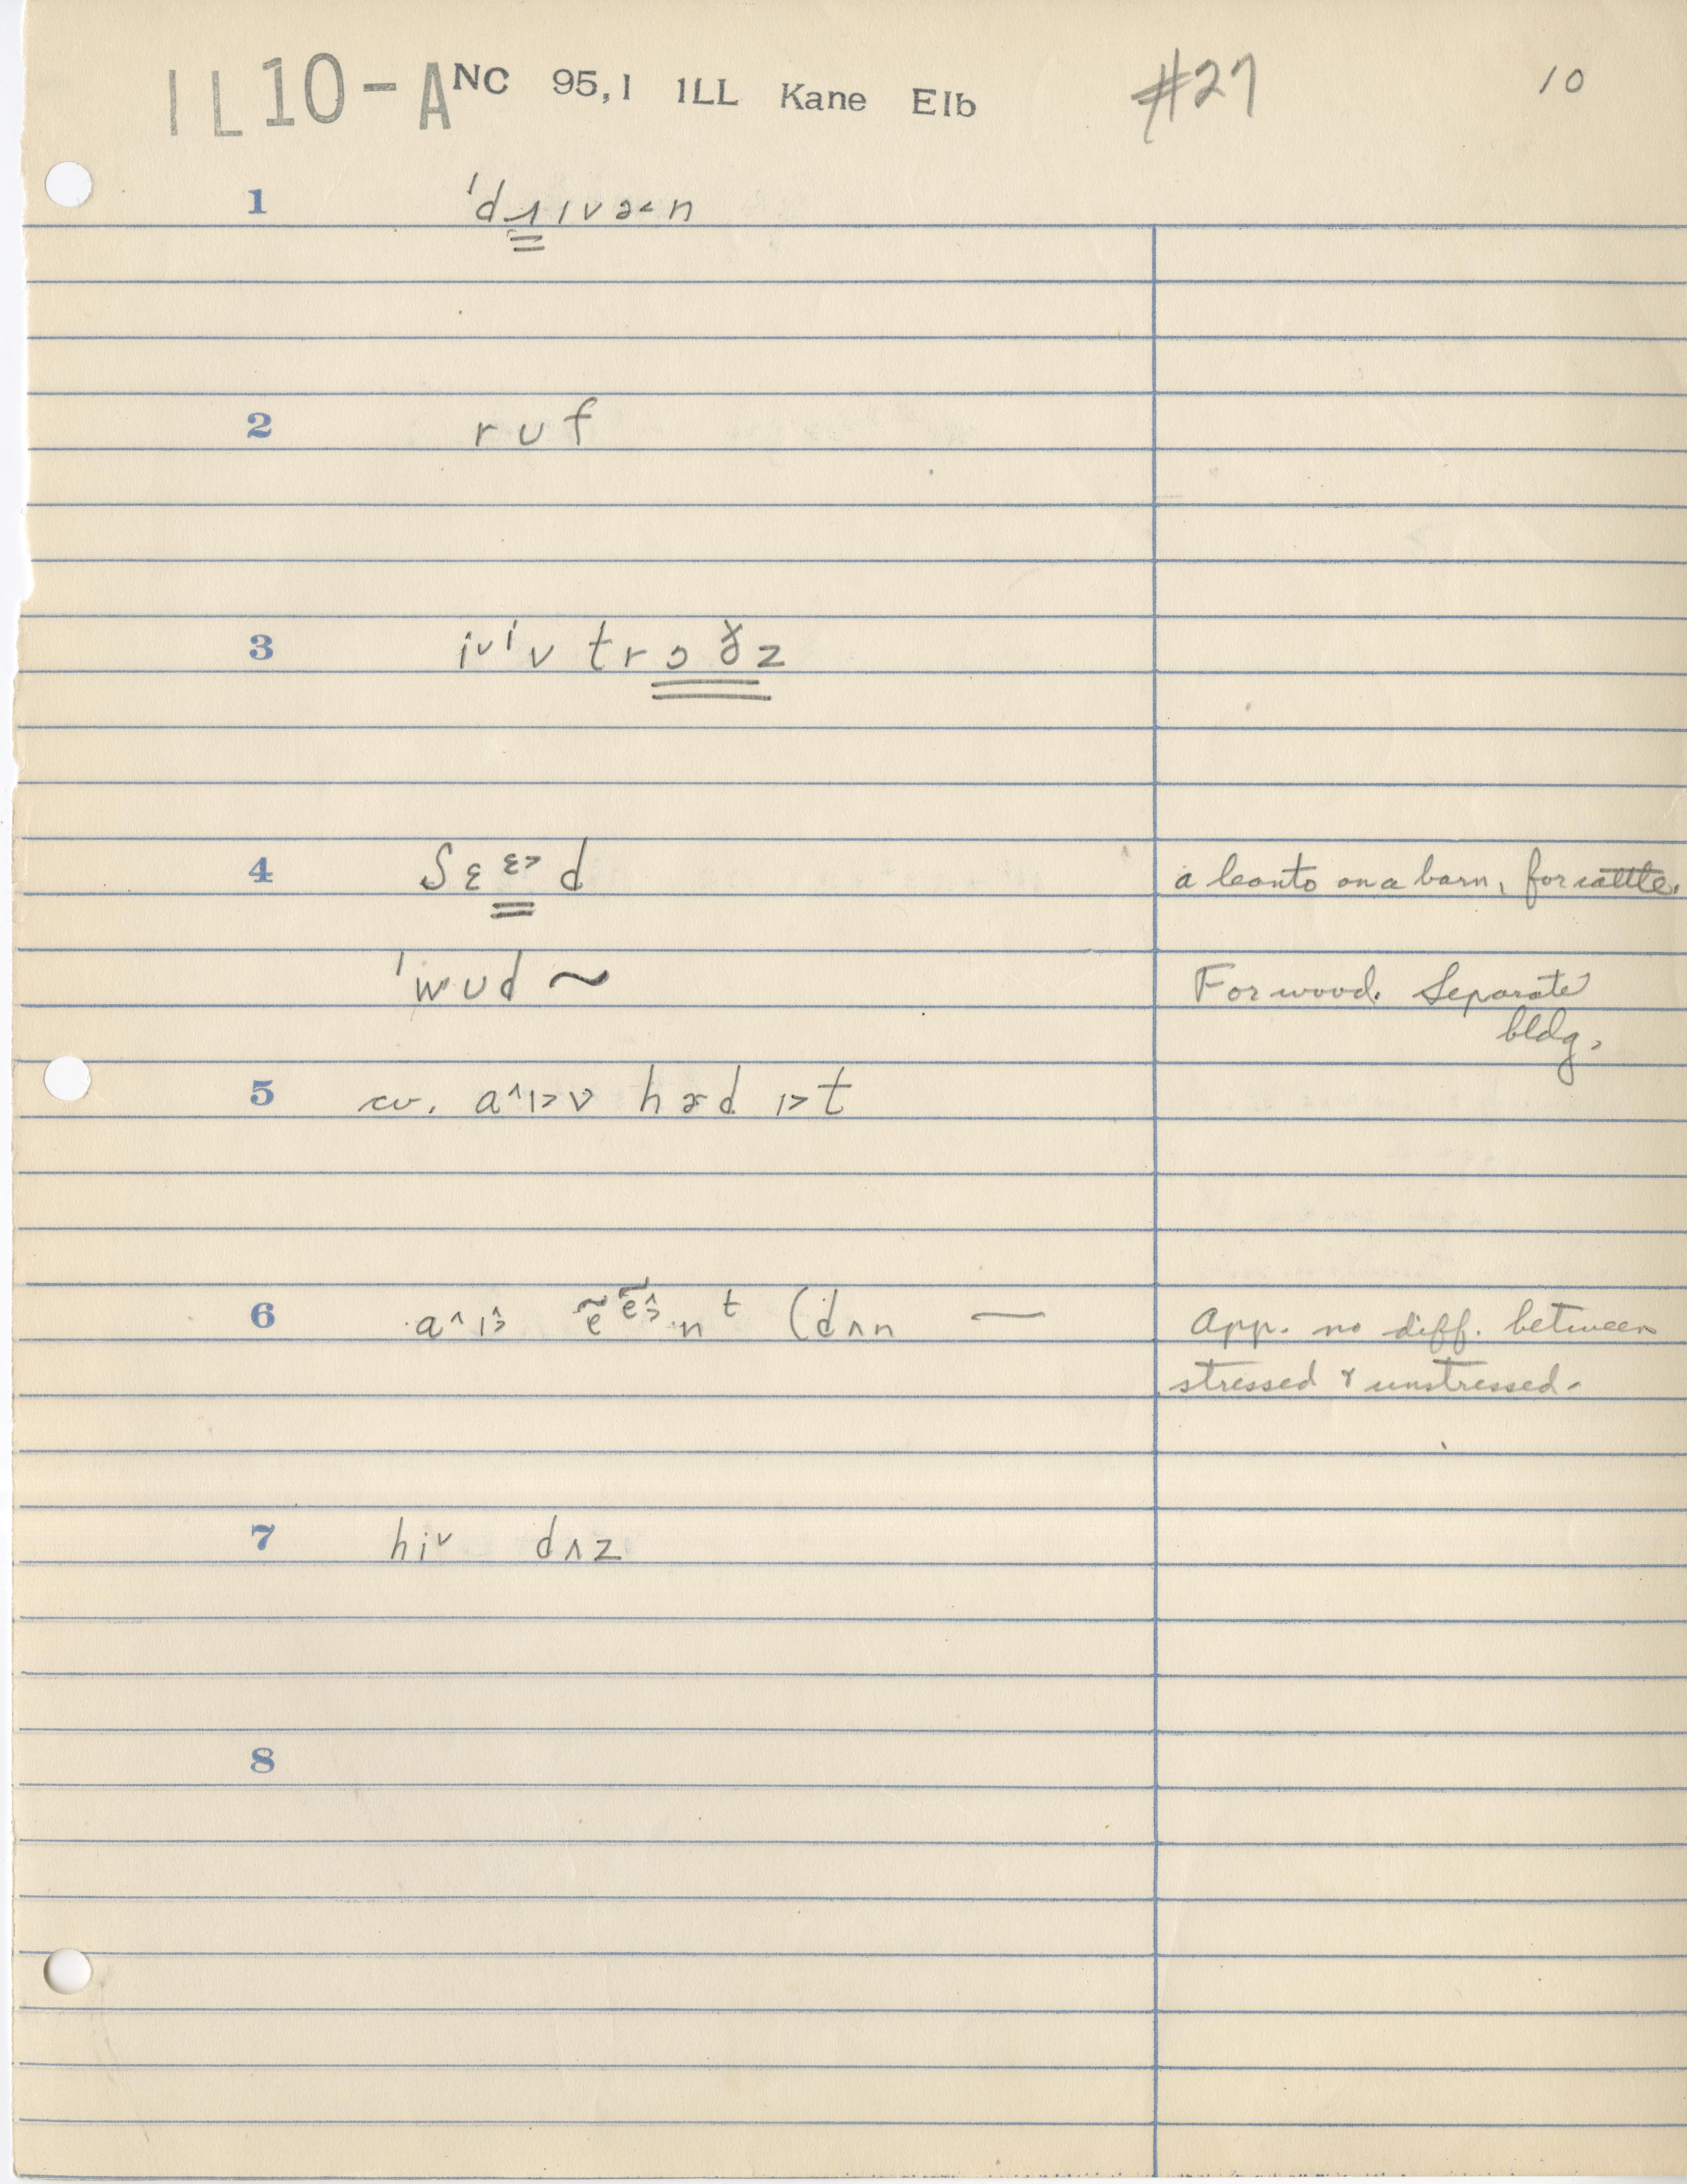 IL10-A NC 95,1 ILL Kane Elb #27 10
1 'dɹɪvə˂n
2 rʊf
3 i˅ⁱ˅ trɔɚz
4 ʃɛᵋ˃d a leanto on a barn, for cattle.
'wʊd ~ For wood. Separate
bldg.
5 cv. a^ɪ˃v hɚd ɪ˃t
6 a^ɪ˃ ẽẽ˃nᵗ (dʌn — App. no diff. between
stressed & unstressed.
7 hi˅ dʌz
8